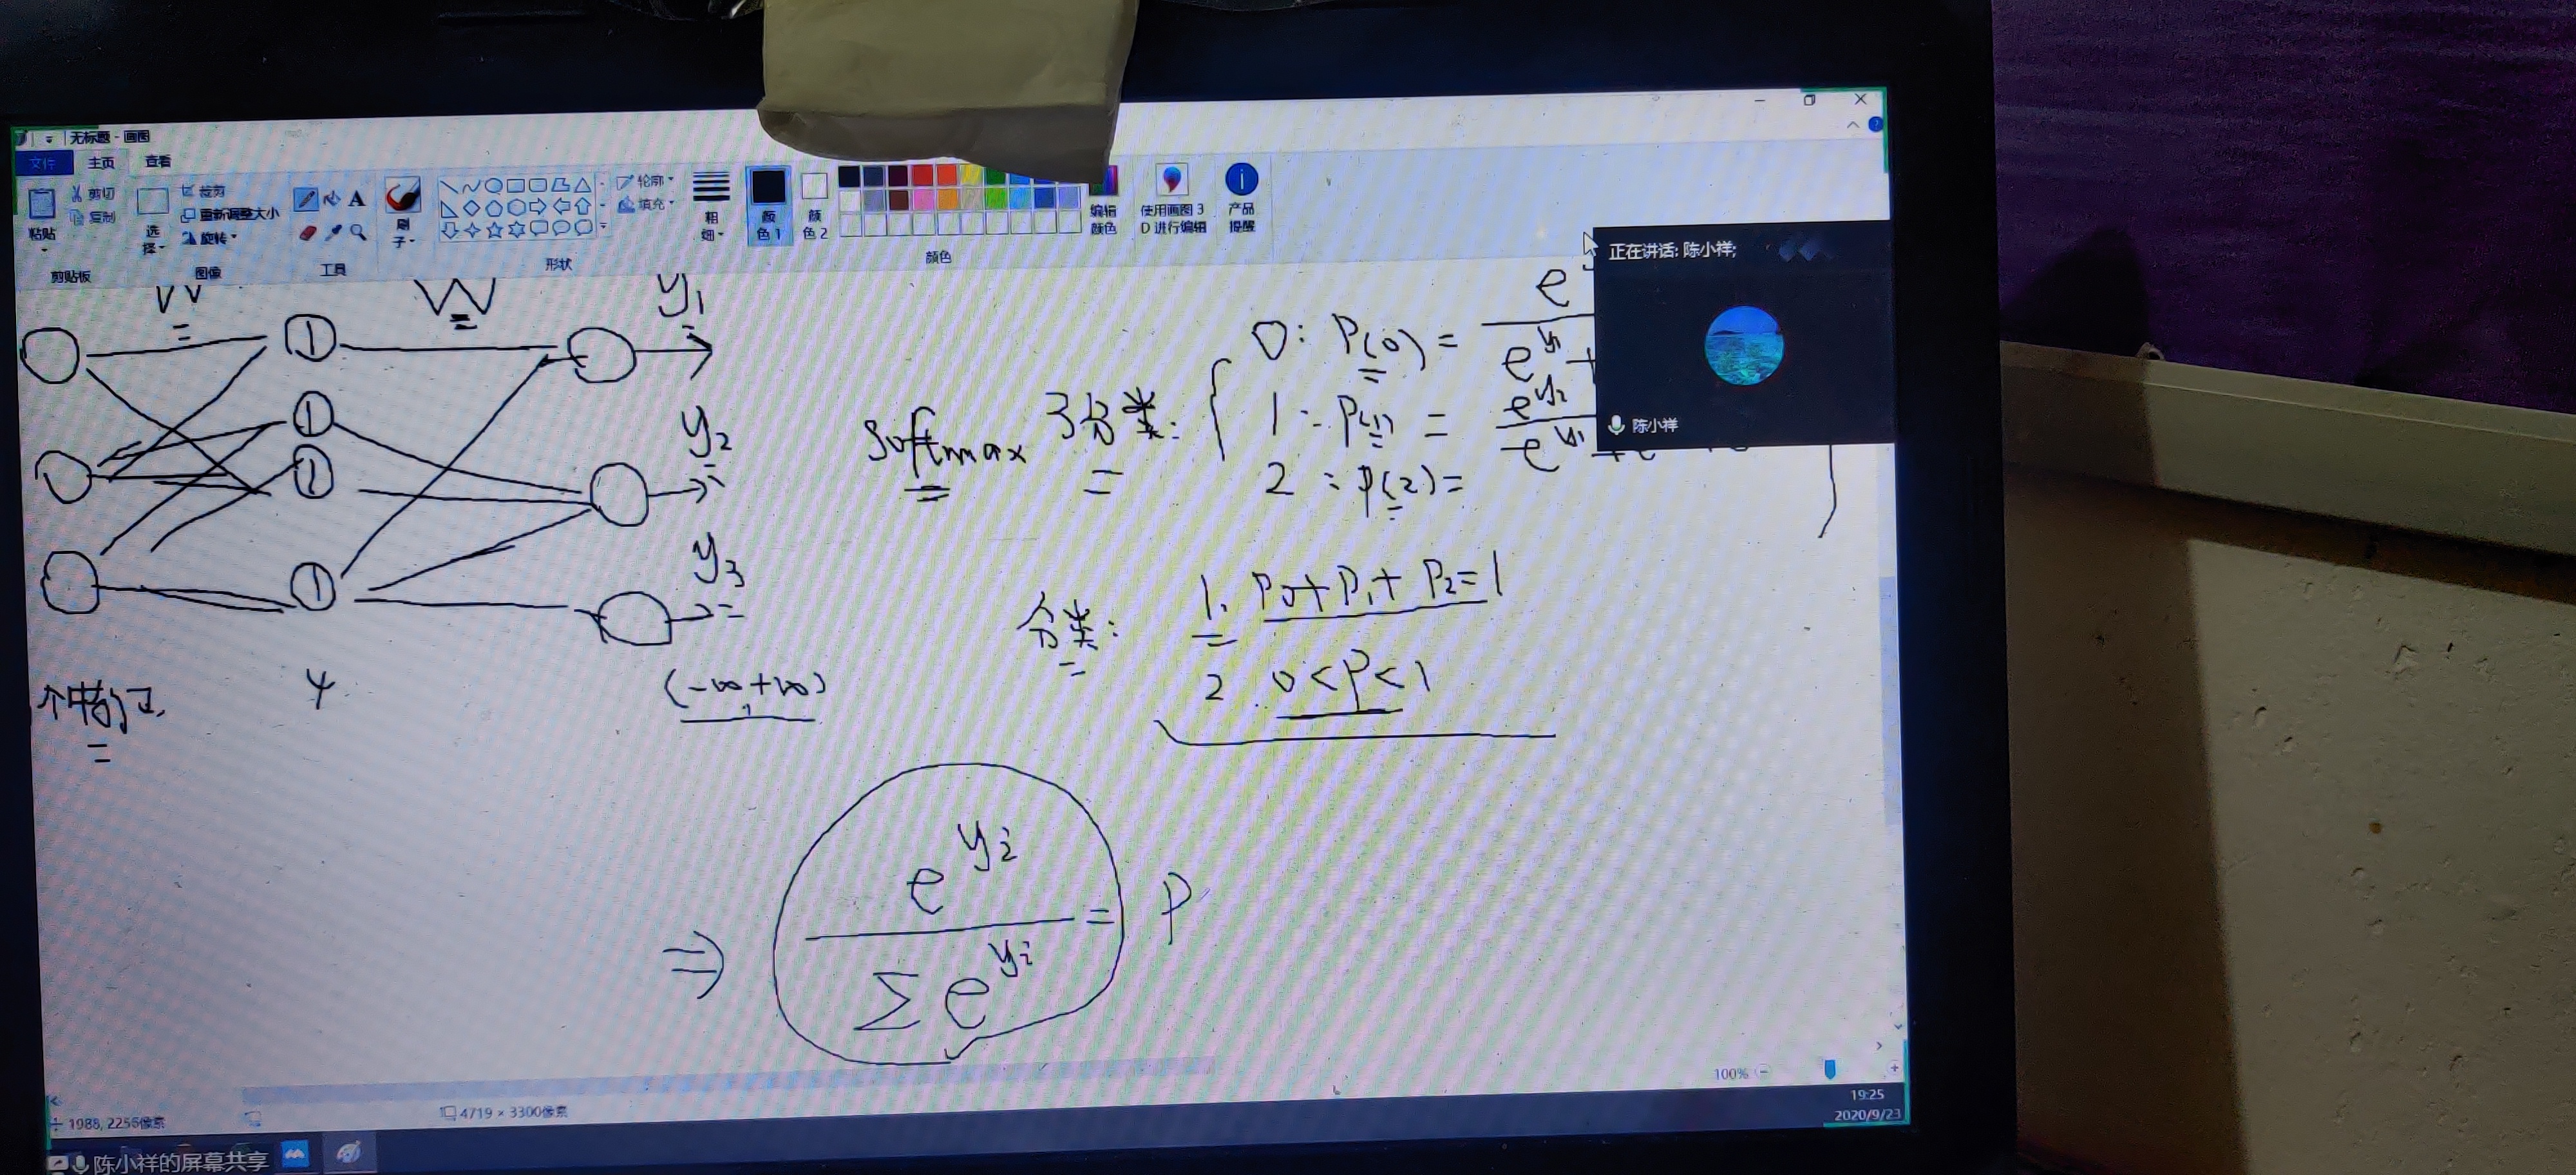 无标题 - 画图
文件 主页 查看
粘贴 剪切 复制
剪贴板
选择 裁剪 重新调整大小 旋转
图像
A
工具
刷子
轮廓 填充
形状
粗细
颜色 1 颜色 2
编辑颜色
颜色
使用画图 3D 进行编辑
产品提醒
正在讲话: 陈小祥;
陈小祥
W W y1
y2
y3
1
1
1
1
4
(-∞ +∞)
softmax 3分类:
0: P(0) = e
e^y1 +
1: P(1) = e^y2
e^y1 + e
2: P(2) =
分类:
1. P0+P1+P2=1
2. 0<P<1
⇒ e^yi / Σ e^yi = P
100%
1988, 2256像素
4719 × 3300像素
19:25
2020/9/23
陈小祥的屏幕共享